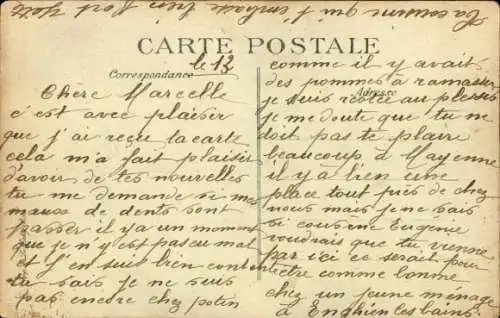 CARTE POSTALE
Correspondance
Adresse
le 13
Chère Marcelle
c'est avec plaisir
que j'ai reçu ta carte
cela m'a fait plaisir
d'avoir de tes nouvelles
tu me demande si mes
maux de dents sont
passer il y a un moment
que je n'y est pas eu mal
et j'en suis bien contente
tu sais je ne suis
pas encore chez potin
comme il y avait
des pommes à ramasser
je suis restée au plessis
je me doute que tu ne
doit pas te plaire
beaucoup à Mayenne
il y a bien une
place tout près de chez
nous mais je ne sais
si cousine Eugenie
voudrais que tu vienne
par ici ce serait pour
être comme bonne
chez un jeune ménage
à Enghien les bains
ta cousine qui t'embrasse bien fort